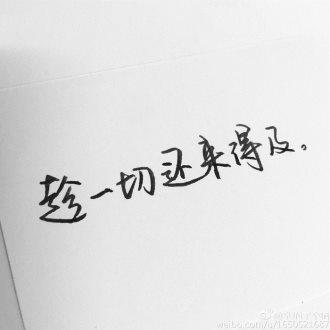 趁一切还来得及。
weibo.com/u/1650521687